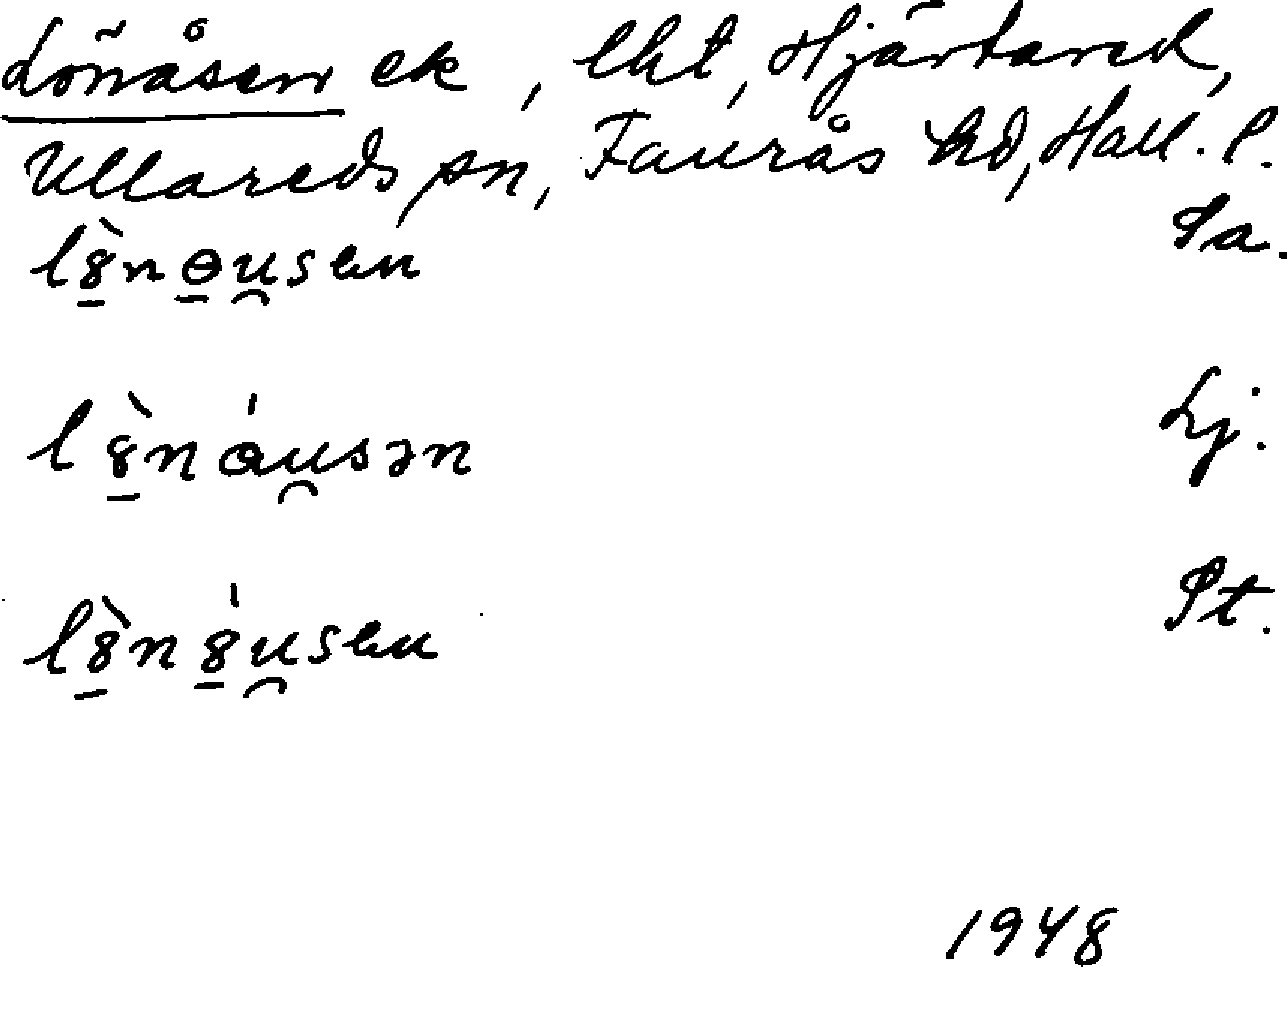 Lönåsen ek, lht, Hjärtared,
Ullareds sn, Faurås hd, Hall. l.
l8̲̀nɵ̲u̯sen Sa.
l8̲̀nɑ́u̯sən Lj.
l8̲̀n8̲́u̯sen Pt.
1948